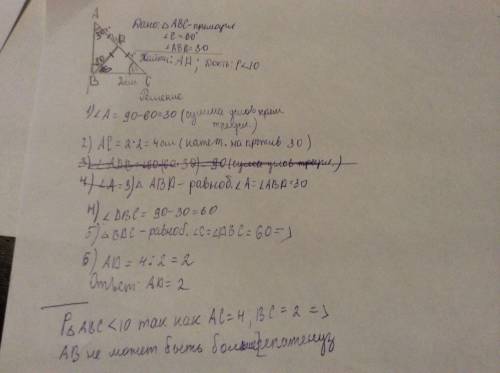 A
30°
D
30
60
60
B
2см
C
Дано: △ABC - прямоуг.
∠C = 60°
∠ABD = 30
Найти: AD; Доказ: P<10
Решение
1) ∠A = 90-60=30 (сумма углов прям.
треуг.)
2) AC = 2·2 = 4см (катет. на против 30)
4) ∠A = ⇒ △ABD - равноб. ∠A = ∠ABD = 30
4) ∠DBC = 90 - 30 = 60
5) △BDC - равноб. ∠C = ∠DBC = 60 ⇒
6) AD = 4:2 = 2
Ответ: AD = 2
P△ABC < 10 так как AC = 4, BC = 2 ⇒
AB не может быть больше гипотенуз